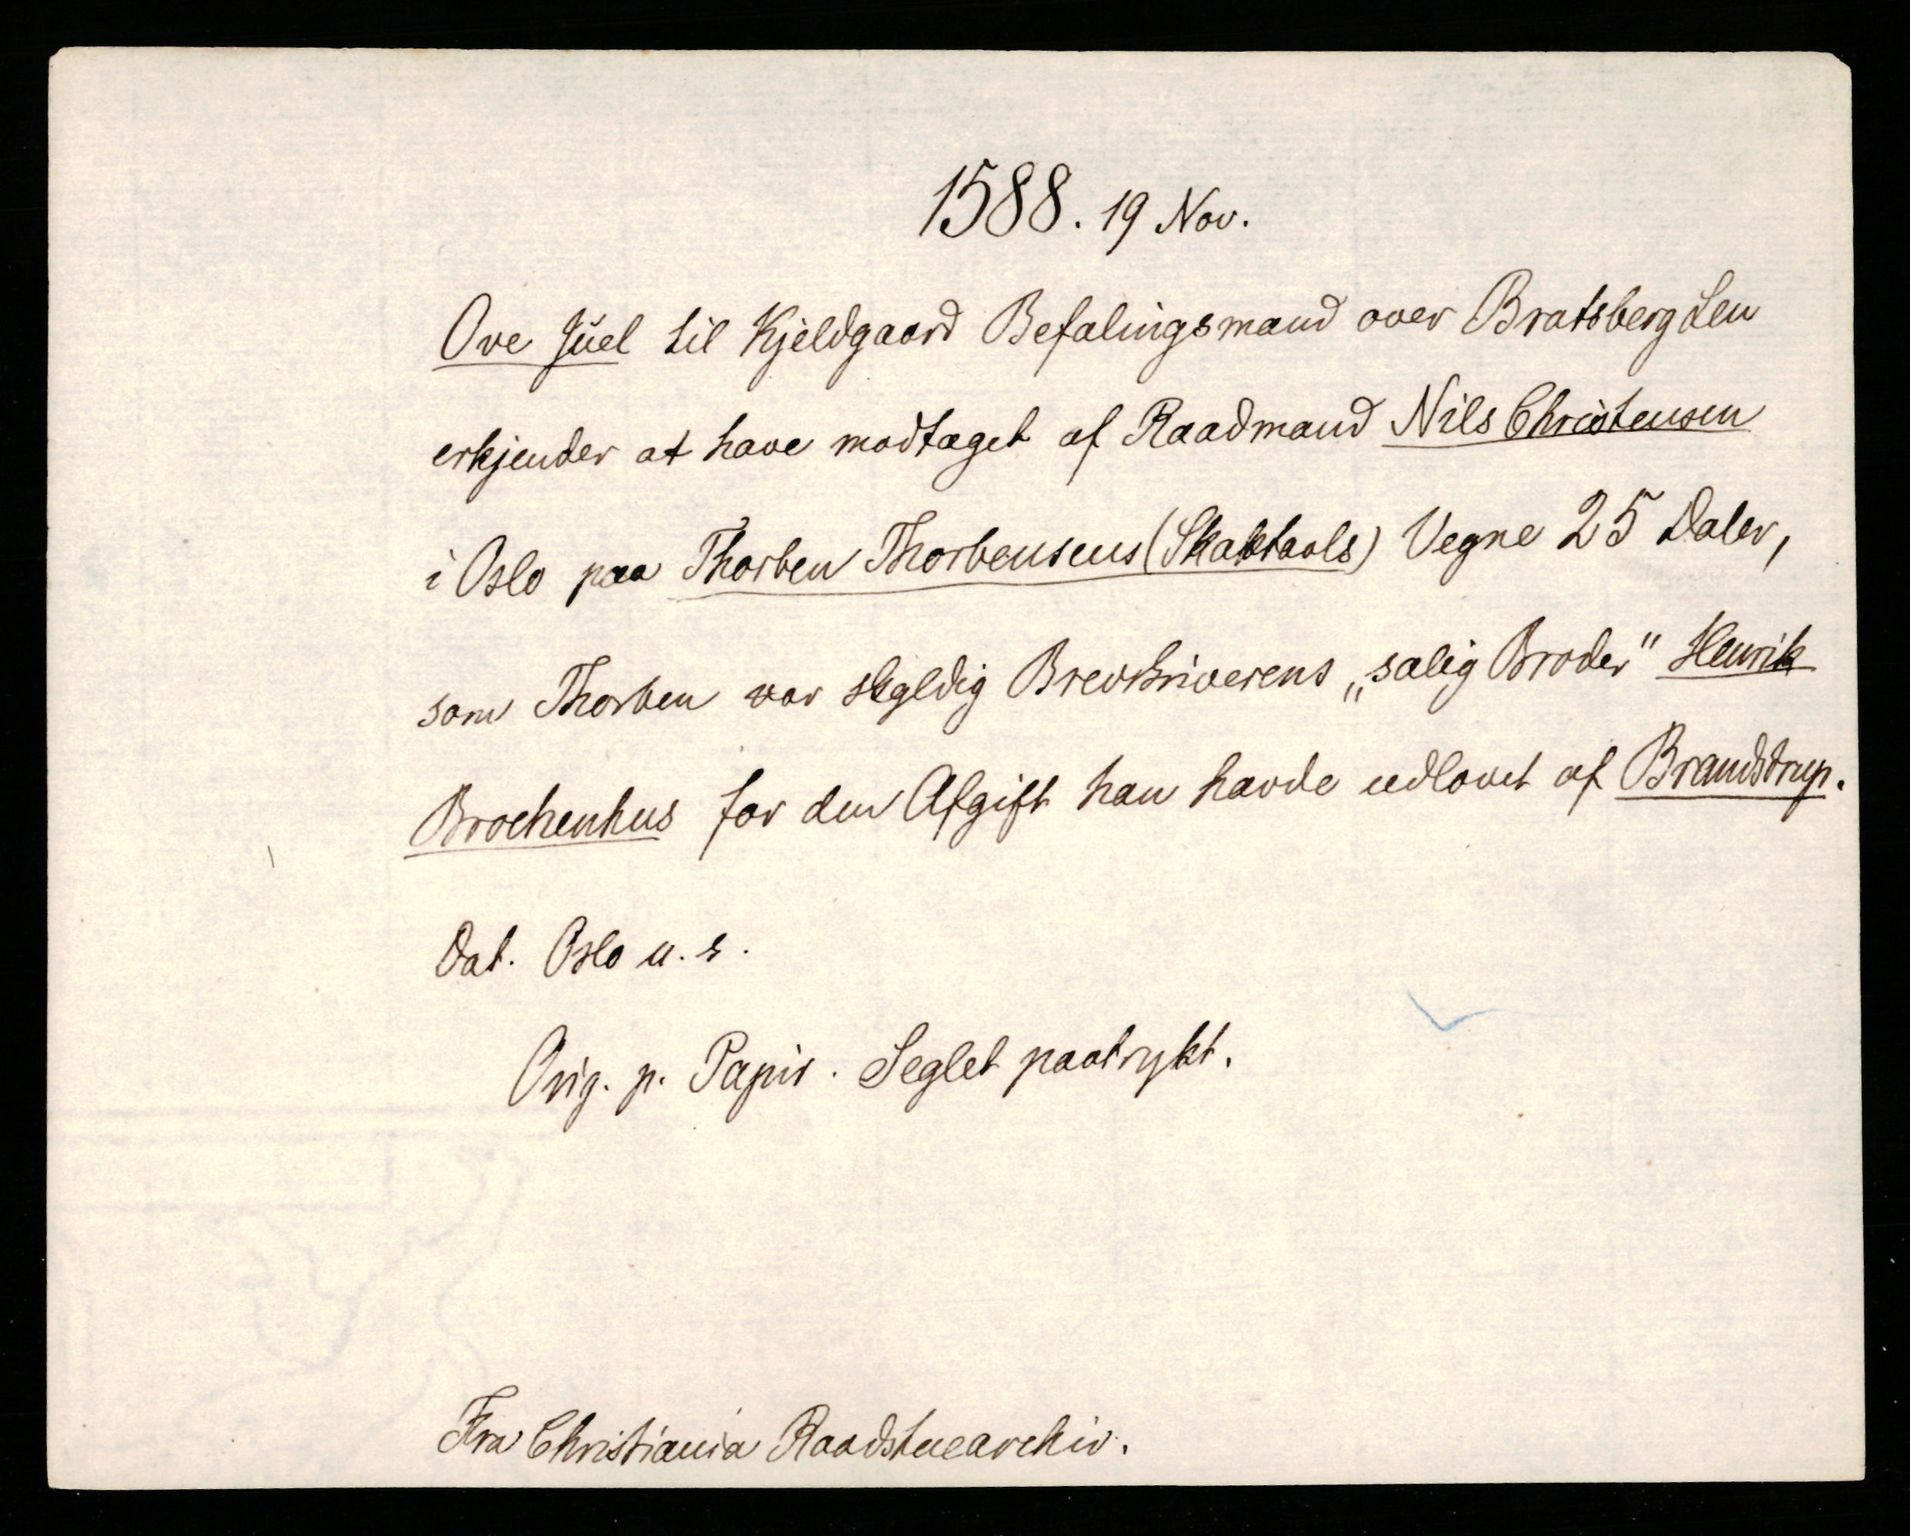 1588. 19 Nov.
Ove Juel til Kjeldgaard Befalingsmand over Bratsberg Len
erkjender at have modtaget af Raadmand Nils Christensen
i Oslo paa Thorben Thorbensens (Skaktavls) Vegne 25 Daler,
som Thorben var skyldig Brevskriverens „salig Broder" Henrik
Brochenhus for den Afgift han havde udlovet af Brandstrup.
Dat. Oslo u. s.
Orig. p. Papir. Seglet paatrykt.
Fra Christiania Raadstuearchiv.